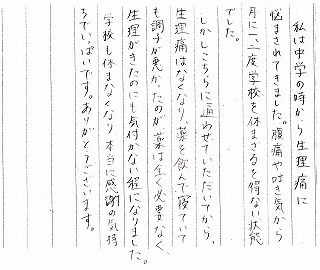 私は中学の時から生理痛に
悩まされてきました。腹痛や吐き気から
月に一、二度学校を休まざるを得ない状態
でした。
しかしこちらに通わせていただいてから、
生理痛はなくなり、薬を飲んで寝ていて
も調子が悪かったのが、薬は全く必要なく、
生理がきたのにも気付かない程になりました。
学校も休まなくなり本当に感謝の気持
ちでいっぱいです。ありがとうございます。